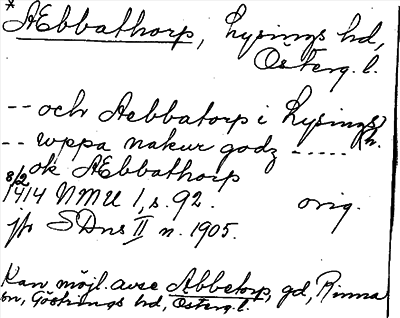 * AEbbathorp, Lysings hd,
Österg. l.
-- och Aebbatorp i Lysings
-- uppa nakur godz ----- h.
ok AEbbathorp
8/2 1414 NMU 1, s. 92. orig.
jfr SDns II n. 1905.
Kan möjl. avse Äbbetorp, gd, Rinna
sn, Göstrings hd, Österg. l.